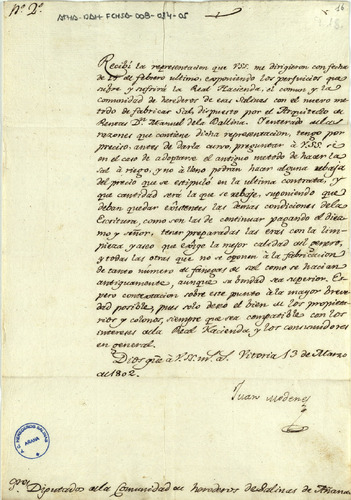 Nº 2º
ATHA-DAH-FCHSA-008-014-05
16
Recibí la representacion que VSS. me dirigieron con fecha
de 15 de febrero ultimo, exponiendo los perjuicios que
sufre y sufrirá la Real Hacienda, el comun y la
comunidad de herederos de esas Salinas con el nuevo metodo
de fabricar Sal, dispuesto por el Arquitecto de
Rentas Dn. Manuel de la Ballina. Y enterado de las
razones que contiene dicha representacion, tengo por
preciso, antes de darle curso, preguntar á VSS. si
en el caso de adoptarse el antiguo metodo de hacer la
sal á riego, y no á lleno podrán hacer alguna rebaja
del precio que se estipuló en la ultima contrata, y
que cantidad será la que se rebaje, suponiendo que
deban quedar existentes las demas condiciones de la
Escritura, como son las de continuar pagando el diezmo
y señor, tener preparadas las eras con la limpieza,
y aseo que exige la mejor calidad del genero,
y todas las otras que no se oponen á la fabricacion
de tanto número de fanegas de sal como se hacian
antiguamente, aunque su bondad sea superior. Espero
contextacion sobre este punto á la mayor brevedad
posible, pues solo deseo el bien de los propietarios
y colonos, siempre que sea compatible con los
intereses de la Real Hacienda, y los consumidores
en general.
Dios gue. á VSS. ms. as. Vitoria 13 de Marzo
de 1802.
Juan Modenes
A. C. HEREDEROS SALINAS
AÑANA
Diputados de la Comunidad de herederos de Salinas de Añana